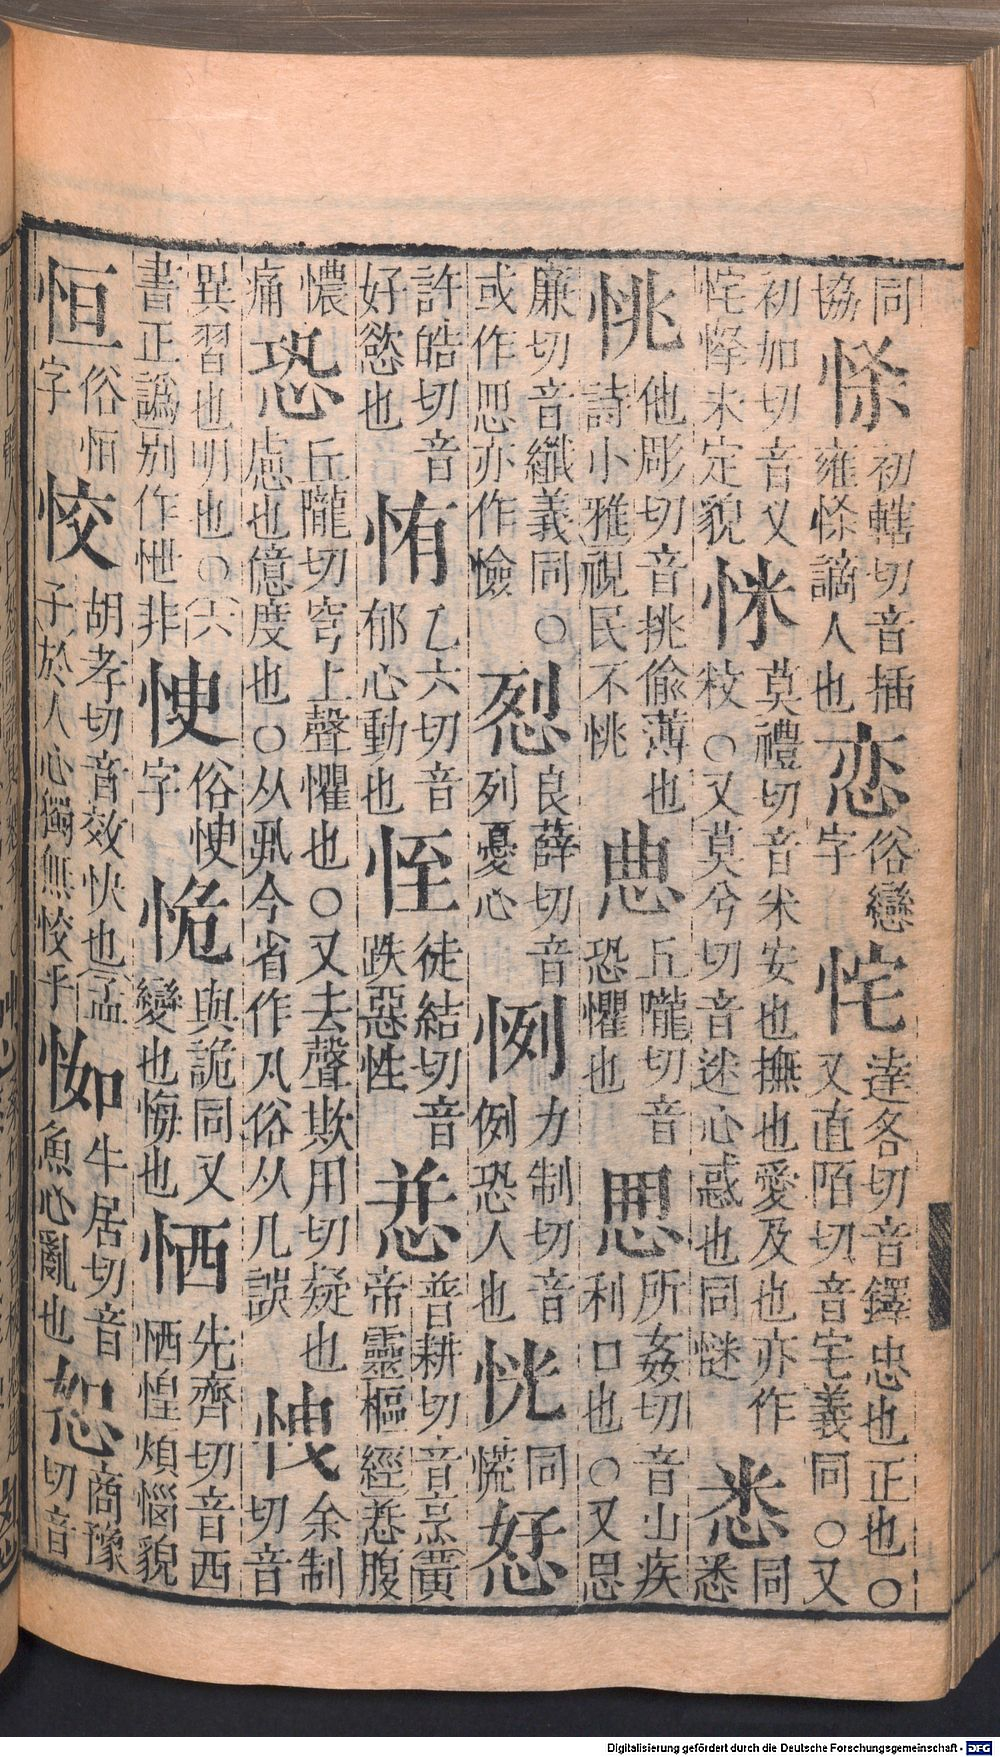 同協初轄切音插雍謫人也恋俗戀字㤞達各切音鐸忠也正也○又直陌切音宅義同○又
初加切音叉㤞怿未定貌莫禮切音米安也撫也愛及也亦作敉○又莫兮切音迷心惑也同悉同悉
恌他彫切音挑偷薄也詩小雅視民不恌丘隴切音恐懼也所姦切音山疾利口也○又思
廉切音纖義同○或作思亦作憸良薛切音列憂心㤡力制切音例例恐人也恍同慌
許皓切音好慾也乙六切音郁心動也恎徒結切音跌惡性普耕切音烹黃帝靈樞經腹
憹痛恐丘隴切穹上聲懼也○又去聲欺用切疑也慮也億度也○从巩今省作凡俗从几誤余制切音
異習也明也○六書正譌別作怈非俗字恑與詭同又變也悔也恓先齊切音西恓惶煩惱貌
恒俗恆字恔胡孝切音效快也孟子於人心獨無恔乎牛居切音魚心亂也恕商豫切音
Digitalisierung gefördert durch die Deutsche Forschungsgemeinschaft - DFG